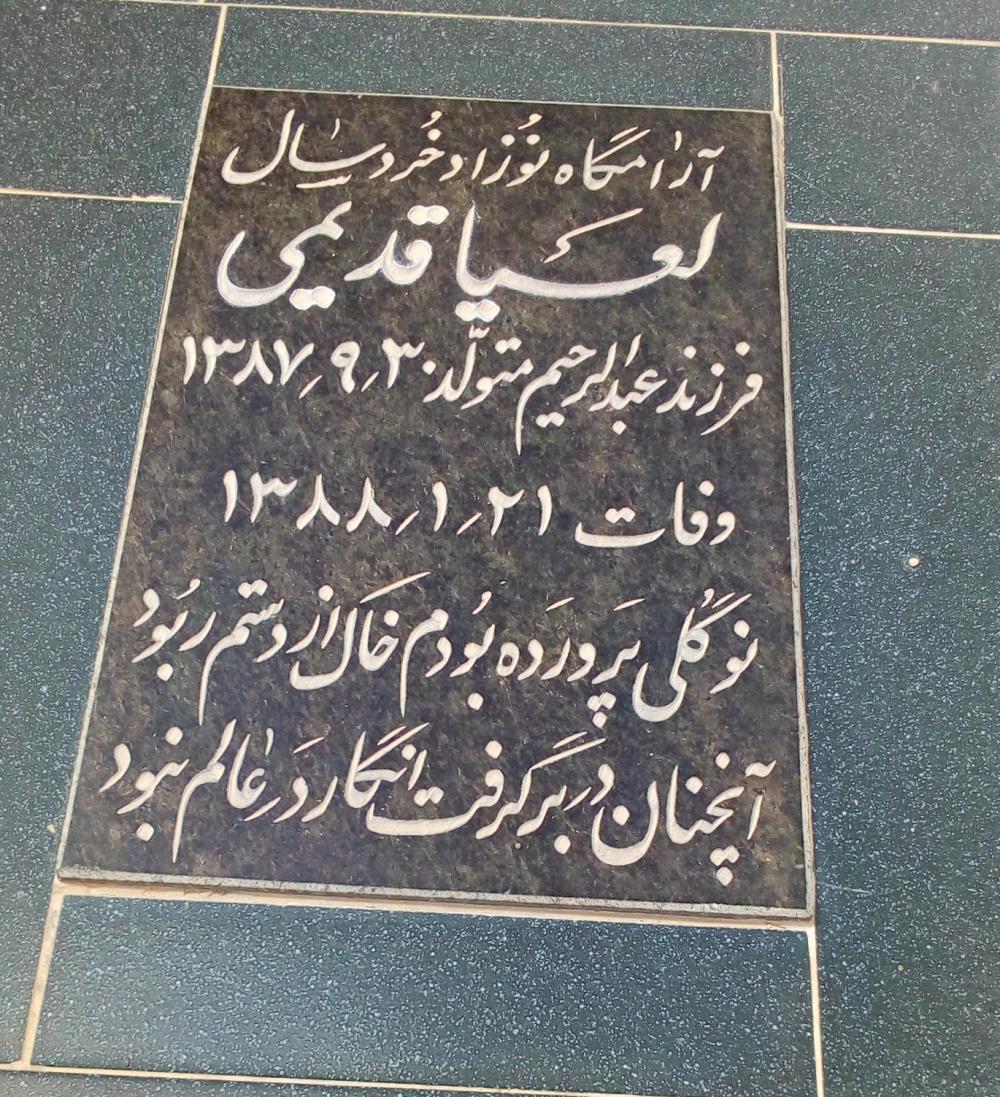 آرامگاه نوزاد خُردسال
لعیا قدیمی
فرزند عبدالرحیم متولّد ۳۰٫۹٫۱۳۸۷
وفات ۲۱٫۱٫۱۳۸۸
نوگُلی پَروَرَده بُودم خاک از دستم ربُود
آنچنان در بَر گرفت انگار دَر عالم نبود